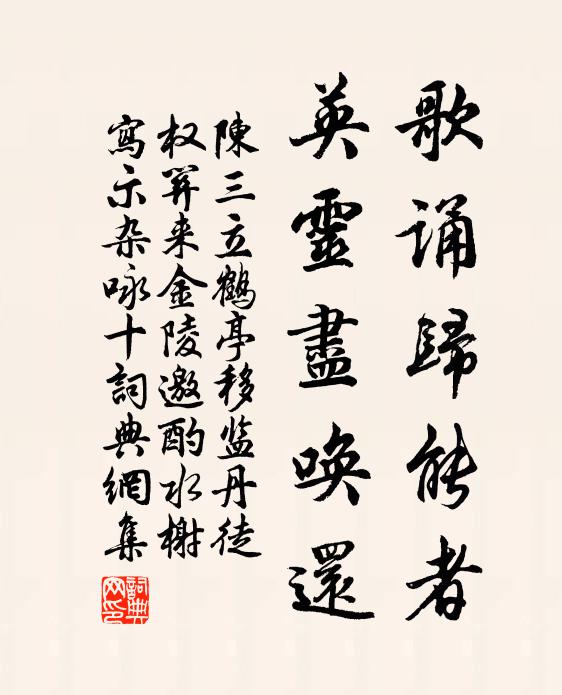 歌誦歸能者
英靈盡唤還
陳三立鶴亭移监丹徒
权筭来金陵邀酌水榭
寫示杂咏十詞典網集
詞典网印